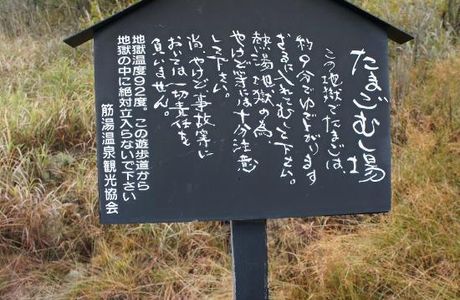 たまごむし場
この地獄でたまごは、
約9分でゆで上がります
ざるに入れてむして下さい。
熱湯地獄の為
やけど等には十分注意
して下さい。
尚、やけど事故等に
おいては一切責任を
負いません。
地獄温度92度、この遊歩道から
地獄の中に絶対立入らないで下さい
筋湯温泉観光協会